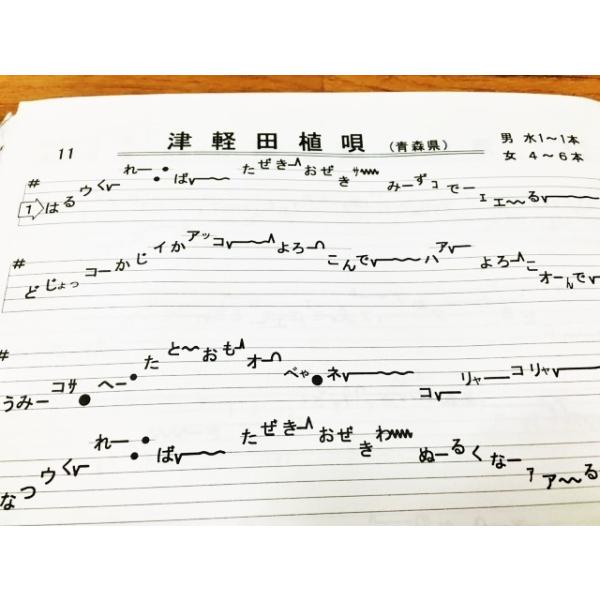 11
津軽田植唄（青森県）
男 水1〜1本
女 4〜6本
# 1 はるウくれーばーたぜきーおぜきサみーずコでーェエ〜〜る
# どじょっコーかじイかアッコーよろーこんでーハアーよろーこオーんで
# うみーコサへーたと〜おもーオーべゃネーコーリャーコリャ
なつウくれーばーたぜきーおぜきわぬーるくなーァア〜〜る